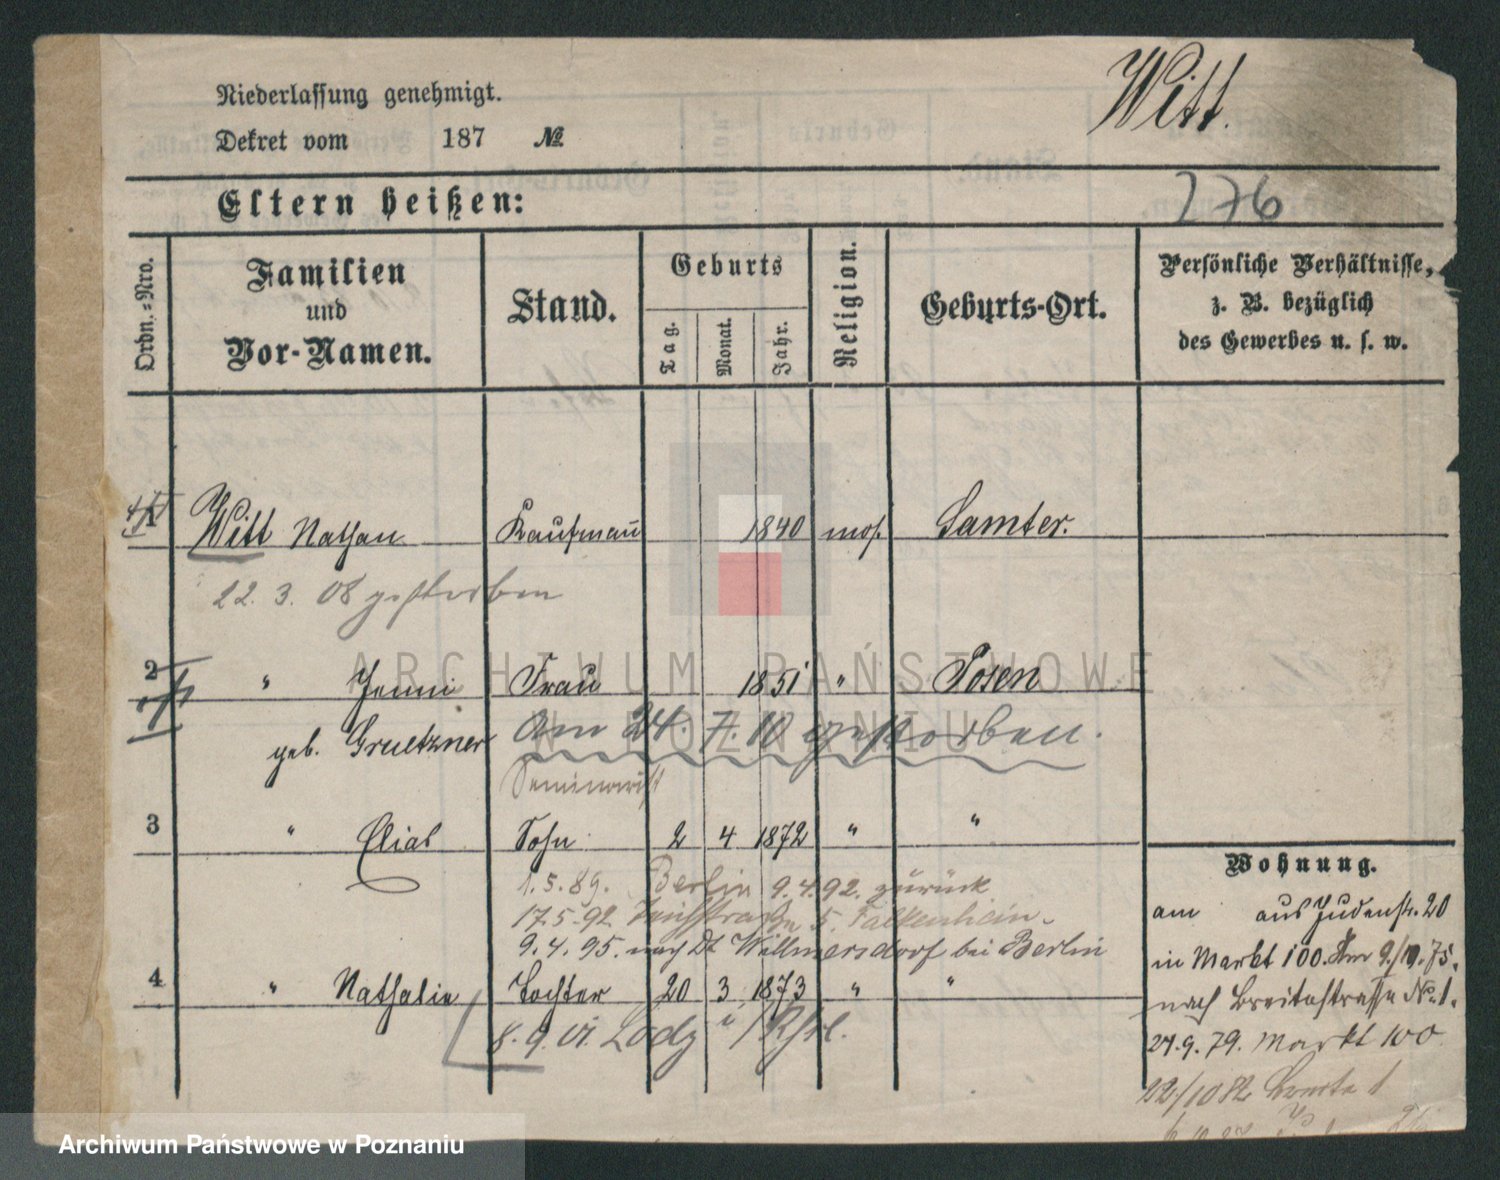 Niederlassung genehmigt.
Witt.
Dekret vom 187 №
Eltern heißen:
276
Ordn.=Nro.
Familien
und
Vor-Namen.
Stand.
Geburts
Tag.
Monat.
Jahr.
Religion.
Geburts-Ort.
Persönliche Verhältnisse,
z. B. bezüglich
des Gewerbes u. s. w.
1 Witt Nathan Kaufmann 1840 mos. Samter.
22. 3. 08 gestorben
2 " Jenni Frau 1851 " Posen
geb. Gruetzner am 24. 7. 10 gestorben.
Seminarist
3 " Elias Sohn 2 4 1872 " "
1. 5. 89. Berlin 9. 4. 92. zurück
17.5.92 5.
9. 4. 95. nach Dt Willmersdorf bei Berlin
4 " Nathalie Tochter 20 3 1873 " "
8. 9. 01. Lodz i/
Wohnung.
am aus Judenstr. 20
in Markt 100. Am 9./10.75.
nach Breitestrasse No. 1.
Markt 100
22/10 82 Breite 1
ARCHIWUM PAŃSTWOWE
W POZNANIU
Archiwum Państwowe w Poznaniu